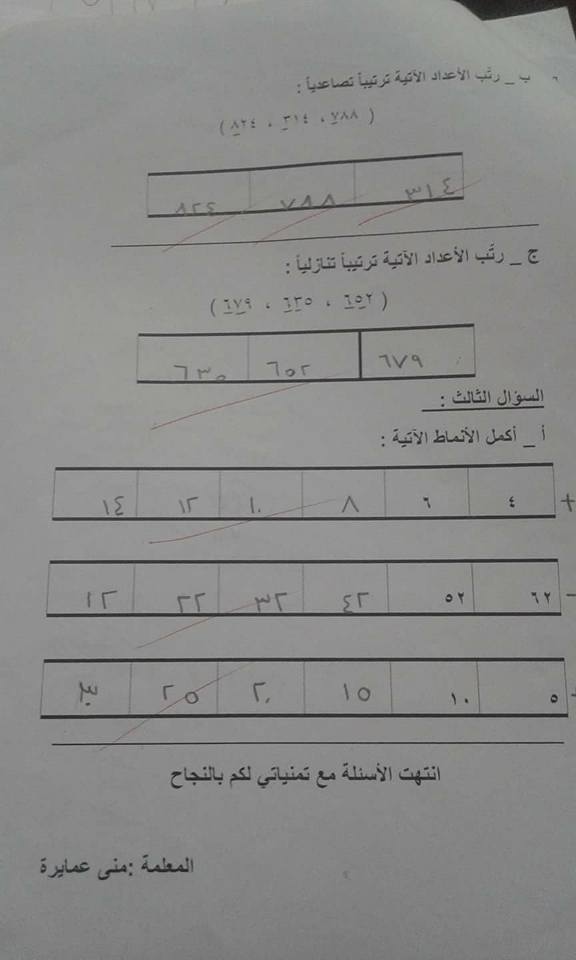 ب _ رتَّب الأعداد الآتية ترتيباً تصاعدياً :
( ٧٨٨ ، ٣١٤ ، ٨٢٤ )
٣١٤ ٧٨٨ ٨٢٤
ج _ رتَّب الأعداد الآتية ترتيباً تنازلياً :
( ٦٥٢ ، ٦٣٥ ، ٦٧٩ )
٦٧٩ ٦٥٢ ٦٣٥
السؤال الثالث :
أ _ أكمل الأنماط الآتية :
+ ٤ ٦ ٨ ١٠ ١٢ ١٤
- ٦٢ ٥٢ ٤٢ ٣٢ ٢٢ ١٢
٥ ١٠ ١٥ ٢٠ ٢٥ ٣٠
انتهت الأسئلة مع تمنياتي لكم بالنجاح
المعلمة :منى عمايرة